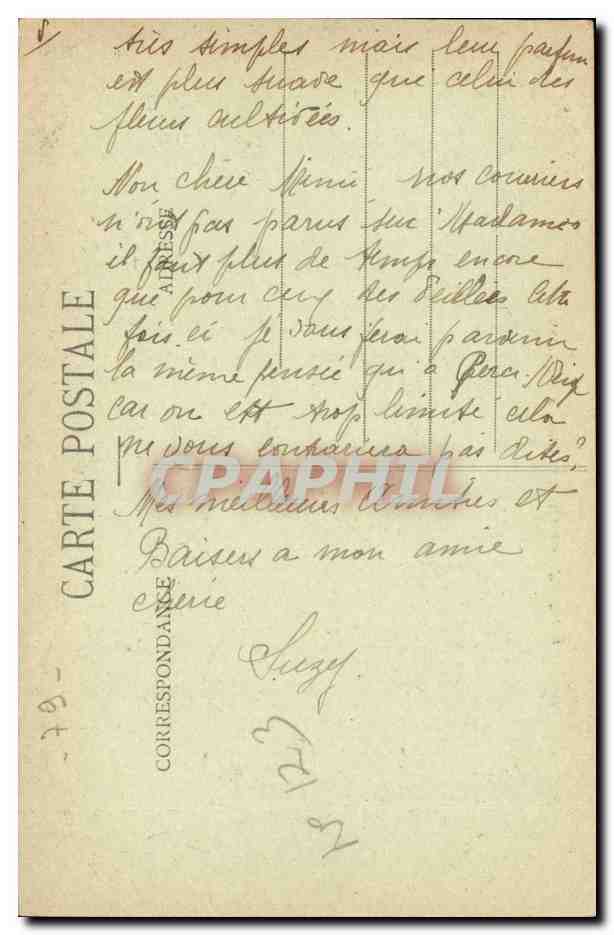 très simples mais leur parfum
est plus suave que celui des
fleurs cultivées.
Mon chère Mimi nos courriers
n'ont pas parus sur Madames
il faut plus de temps encore
que pour ceux des Veillées Cette
fois ci je vous ferai parvenir
la même pensée qui a
car on est trop limité cela
ne vous contrariera pas dites ?
Mes meilleures Amitiés et
Baisers a mon amie
chérie
Suzy.
CARTE POSTALE
ADRESSE
CORRESPONDANCE
CPAPHIL
-79-
123